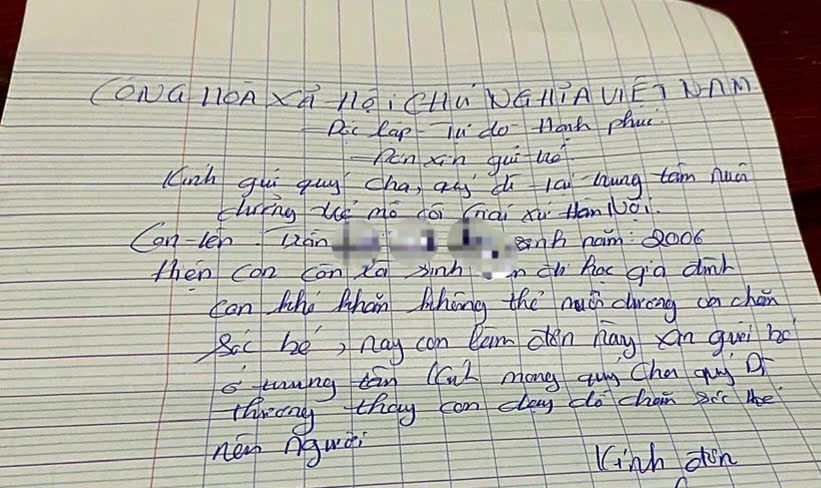 CÔNG HOÀ XÃ HỘI CHỦ NGHĨA VIỆT NAM
Độc lập - Tự do - Hạnh phúc.
- Đơn xin gửi trẻ.
Kính gửi quý cha, quý dì tại trung tâm nuôi
dưỡng trẻ mồ côi Giáo xứ Hàm Nội.
Con tên: Trần sinh năm: 2006
Hiện con còn là sinh đi học gia đình
con khó khăn không thể nuôi dưỡng và chăm
sóc bé, nay con làm đơn này xin gửi bé
ở trung tâm Kính mong quý Cha quý Dì
thương thay con dạy dỗ chăm sóc bé
nên người
Kính đơn